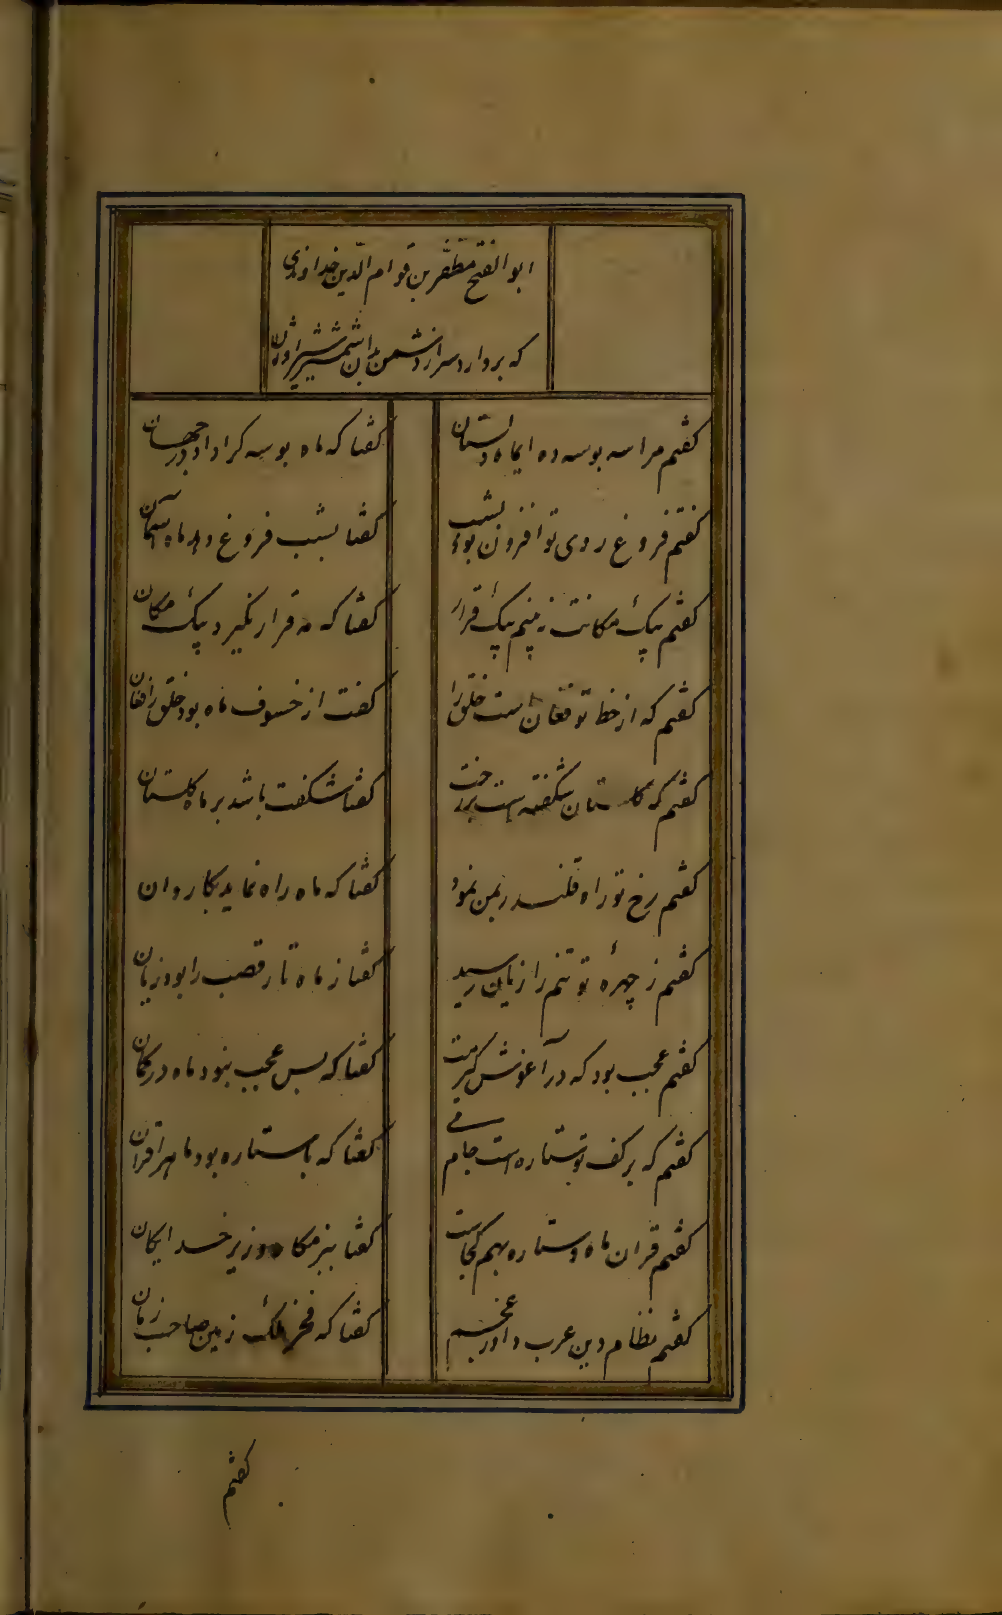 ابو الفتح مظفر بن قوام الدین خداوندی
که بردارد سر از دشمن بدان شمشیر شیر اوژن
گفتم مرا سه بوسه ده ای ماه دلستان گفتا که ماه بوسه کرا داد در جهان
گفتم فروغ روی تو افزون بود بشب گفتا بشب فروغ دهد ماه آسمان
گفتم بیک مکانت نه بینم بیک قرار گفتا که مه قرار نگیرد بیک مکان
گفتم که از خط تو فغان است خلق را گفت از خسوف ماه بود خلق را فغان
گفتم که گلستان شگفته است بر رخت گفتا شگفت باشد بر ماه گلستان
گفتم رخ تو راه قلندر بمن نمود گفتا که ماه راه نماید بکاروان
گفتم ز چهرهٔ تو تنم را زیان رسید گفتا ز ماه تار قصب را بود زیان
گفتم عجب بود که در آغوش گیرمت گفتا که بس عجب نبود ماه در کمان
گفتم که بر کف تو ستاره است جام می گفتا که با ستاره بود ماه را قران
گفتم قران ماه و ستاره بهم کجاست گفتا ببزمگاه وزیر خدایگان
گفتم نظام دین عرب داور عجم گفتا که فخر ملک زمین صاحب زمان
گفتم